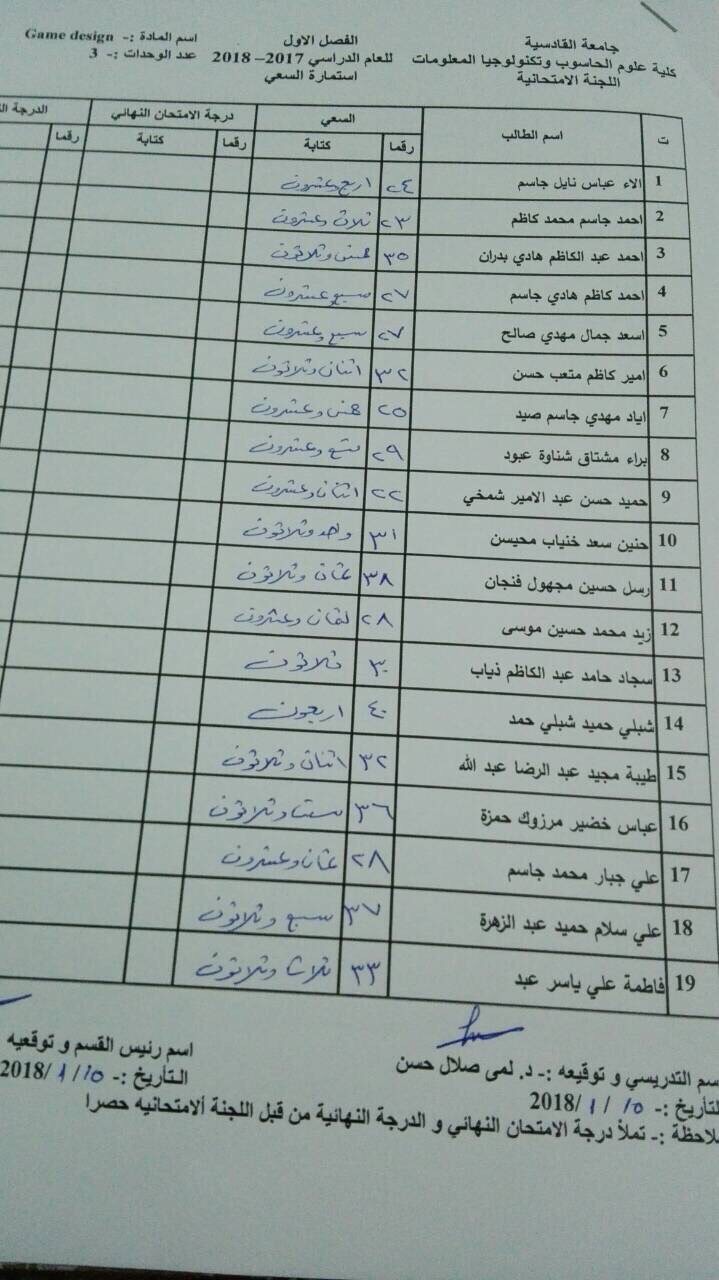 جامعة القادسية
كلية علوم الحاسوب وتكنولوجيا المعلومات
اللجنة الامتحانية
الفصل الاول
للعام الدراسي 2017– 2018
استمارة السعي
اسم المادة :- Game design
عدد الوحدات :- 3
ت اسم الطالب السعي درجة الامتحان النهائي الدرجة
رقما كتابة رقما كتابة رقما
1 الاء عباس نايل جاسم ٢٤ اربع وعشرون
2 احمد جاسم محمد كاظم ٢٣ ثلاث وعشرون
3 احمد عبد الكاظم هادي بدران ٣٥ خمس وثلاثون
4 احمد كاظم هادي جاسم ٢٧ سبع وعشرون
5 اسعد جمال مهدي صالح ٢٧ سبع وعشرون
6 امير كاظم متعب حسن ٣٢ اثنان وثلاثون
7 اياد مهدي جاسم صيد ٢٥ خمس وعشرون
8 براء مشتاق شناوة عبود ٢٩ تسع وعشرون
9 حميد حسن عبد الامير شمخي ٢٢ اثنان وعشرون
10 حنين سعد خنياب محيسن ٣١ واحد وثلاثون
11 رسل حسين مجهول فنجان ٣٨ ثمان وثلاثون
12 زيد محمد حسين موسى ٢٨ ثمان وعشرون
13 سجاد حامد عبد الكاظم ذياب ٣٠ ثلاثون
14 شبلي حميد شبلي حمد ٤٠ اربعون
15 طيبة مجيد عبد الرضا عبد الله ٣٢ اثنان وثلاثون
16 عباس خضير مرزوك حمزة ٣٦ ست وثلاثون
17 علي جبار محمد جاسم ٢٨ ثمان وعشرون
18 علي سلام حميد عبد الزهرة ٣٧ سبع وثلاثون
19 فاطمة علي ياسر عبد ٣٣ ثلاث وثلاثون
سم التدريسي و توقيعه :- د. لمى صلال حسن
لتأريخ :- ١٥ / ١ /2018
اسم رئيس القسم و توقعيه
التأريخ :- ١٥ / ١ /2018
لاحظة :- تملأ درجة الامتحان النهائي و الدرجة النهائية من قبل اللجنة ألامتحانيه حصرا